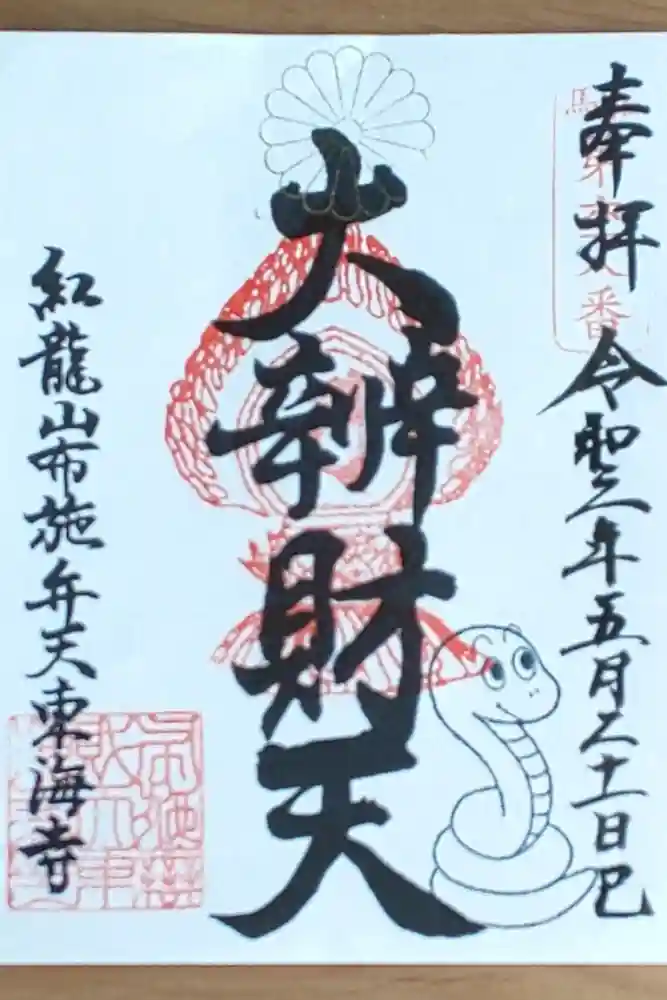 奉拝 令和三年五月二十一日巳
大辨財天
紅龍山布施弁天東海寺